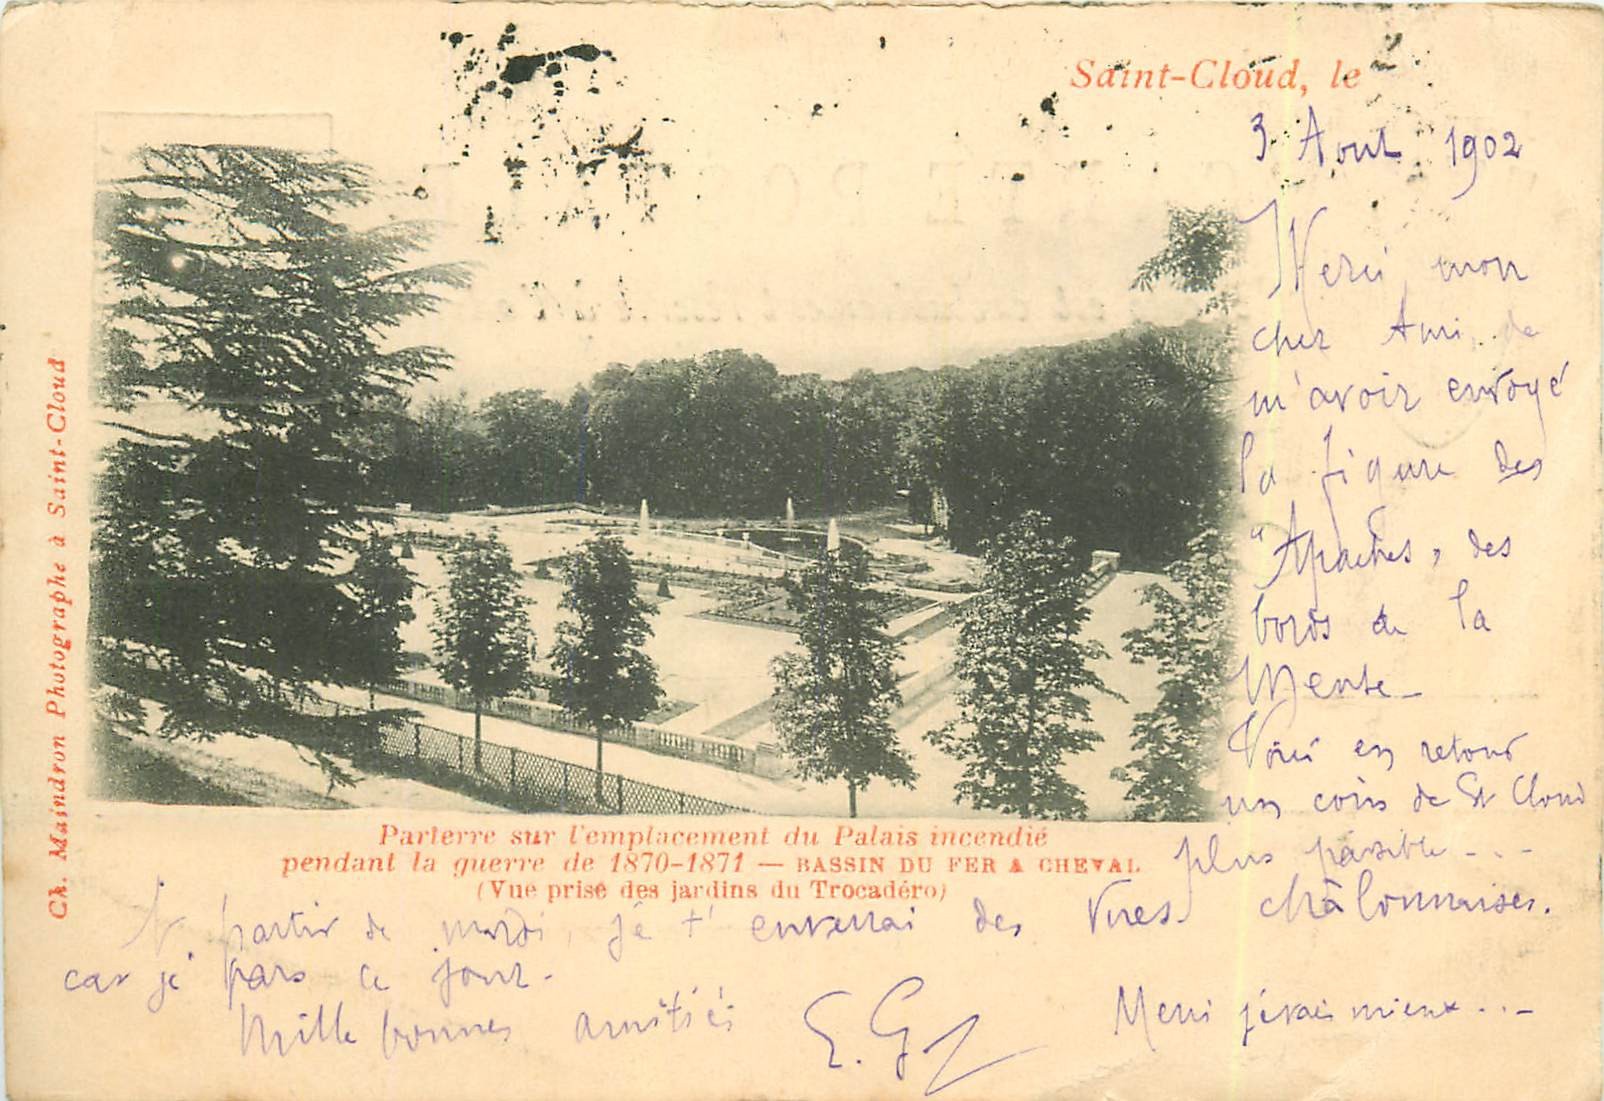 Saint-Cloud, le
3 Aout 1902
Merci mon
cher Ami, de
m'avoir envoyé
la figure des
"Apaches, des
bords de la
Voici en retour
un coin de St Cloud
plus paisible - - -
Ch. Maindron Photographe à Saint-Cloud
Parterre sur l'emplacement du Palais incendié
pendant la guerre de 1870-1871 — BASSIN DU FER A CHEVAL
(Vue prise des jardins du Trocadéro)
A partir de mardi, je t'enverrai des vues châlonnaises.
car je pars ce jour.
Mille bonnes amitiés
E. G
Merci je vais mieux . . . -